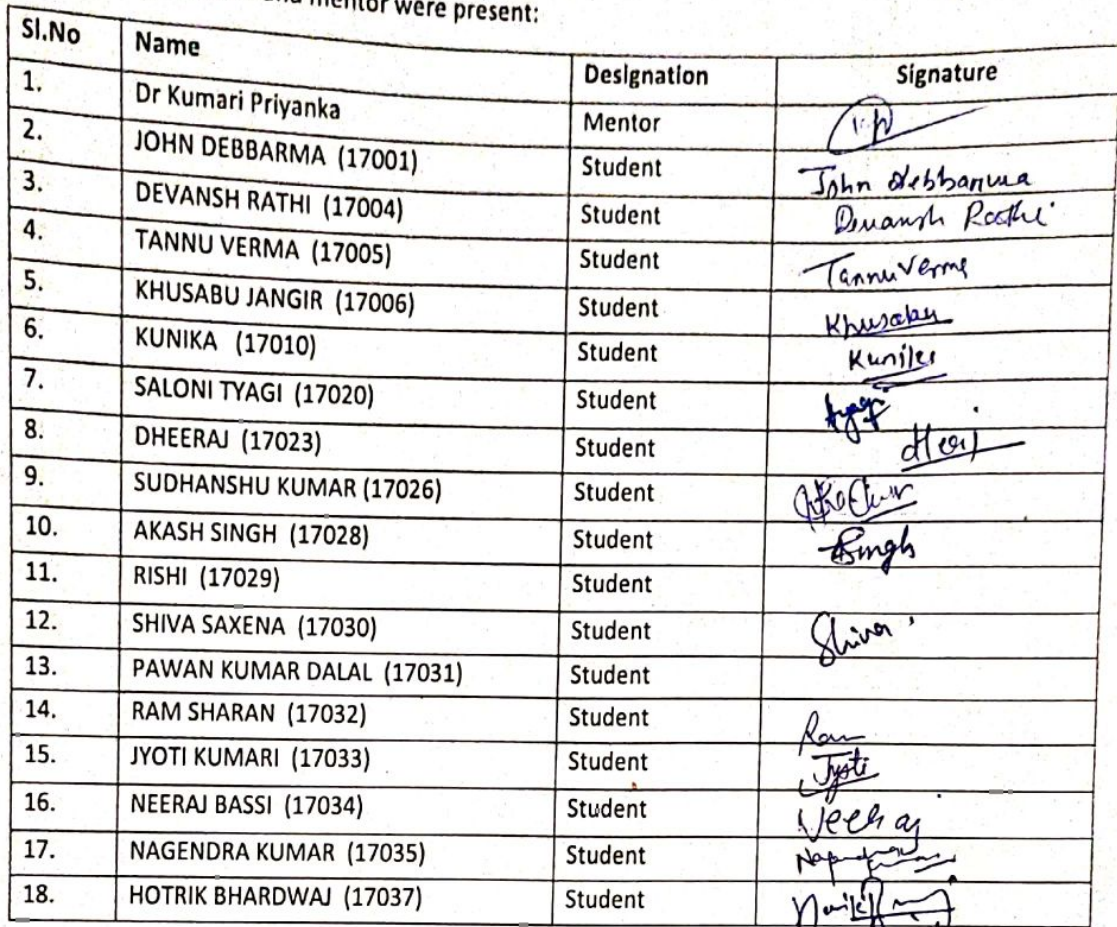 mentor were present:
Sl.No Name Designation Signature
1. Dr Kumari Priyanka Mentor
2. JOHN DEBBARMA (17001) Student John Debbarma
3. DEVANSH RATHI (17004) Student Devansh Rathi
4. TANNU VERMA (17005) Student Tannu Verma
5. KHUSABU JANGIR (17006) Student Khusabu
6. KUNIKA (17010) Student Kunika
7. SALONI TYAGI (17020) Student
8. DHEERAJ (17023) Student
9. SUDHANSHU KUMAR (17026) Student
10. AKASH SINGH (17028) Student Singh
11. RISHI (17029) Student
12. SHIVA SAXENA (17030) Student Shiva
13. PAWAN KUMAR DALAL (17031) Student
14. RAM SHARAN (17032) Student Ram
15. JYOTI KUMARI (17033) Student Jyoti
16. NEERAJ BASSI (17034) Student Neeraj
17. NAGENDRA KUMAR (17035) Student
18. HOTRIK BHARDWAJ (17037) Student